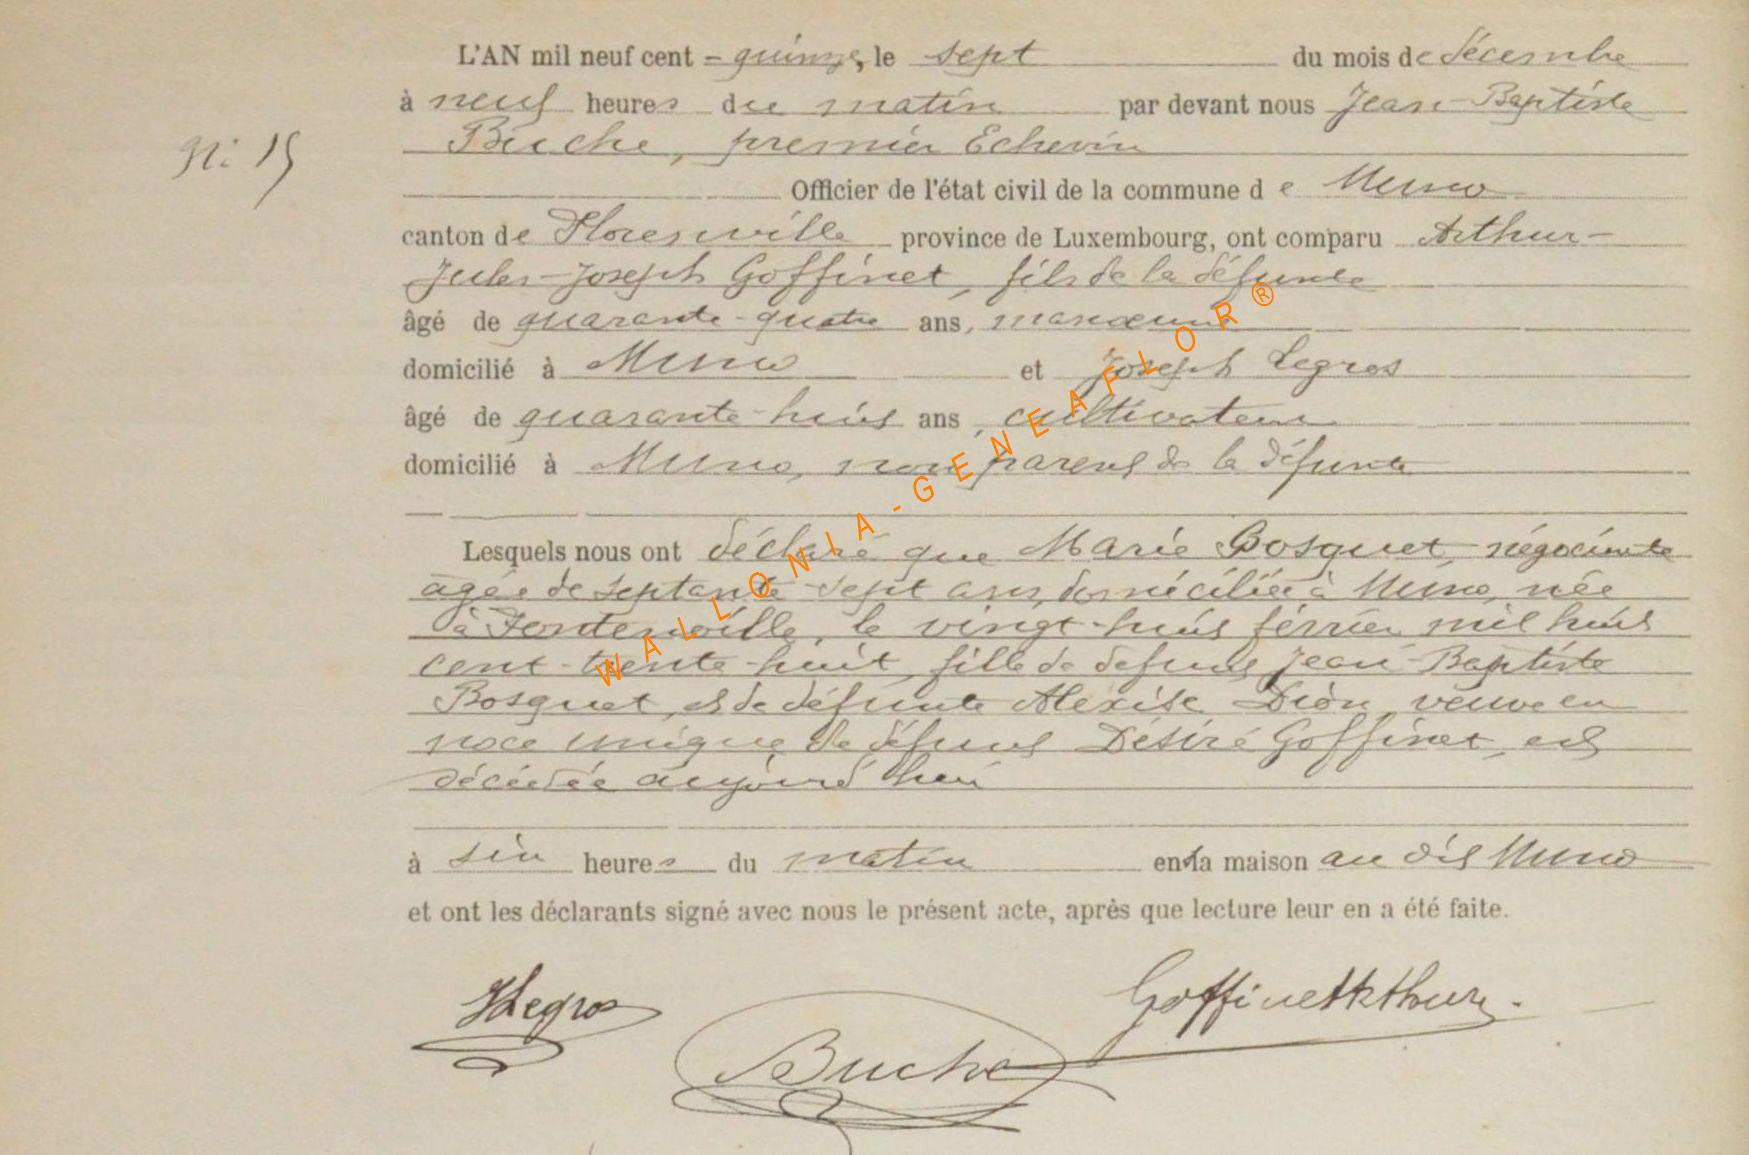 L'AN mil neuf cent - quinze, le sept du mois de décembre
à neuf heures du matin par devant nous Jean-Baptiste
Buche, premier Echevin
N: 15
Officier de l'état civil de la commune de Muno
canton de Florenville province de Luxembourg, ont comparu Arthur-
Jules-Joseph Goffinet, fils de la défunte
âgé de quarante-quatre ans, manœuvre
domicilié à Muno et Joseph Legros
âgé de quarante-huit ans, cultivateur
domicilié à Muno, non parent de la défunte
Lesquels nous ont déclaré que Marie Bosquet, négociante
âgée de septante-sept ans, domiciliée à Muno, née
à Fontenoille, le vingt-huit février mil huit
cent-trente-huit, fille de défunt Jean-Baptiste
Bosquet, et de défunte Alexise Dion, veuve en
noce unique de défunt Désiré Goffinet, est
décédée aujourd'hui
à six heures du matin en la maison au dit Muno
et ont les déclarants signé avec nous le présent acte, après que lecture leur en a été faite.
JLegros
Goffinet Arthur.
Buche
WALLONIA-GENEAFLOR®